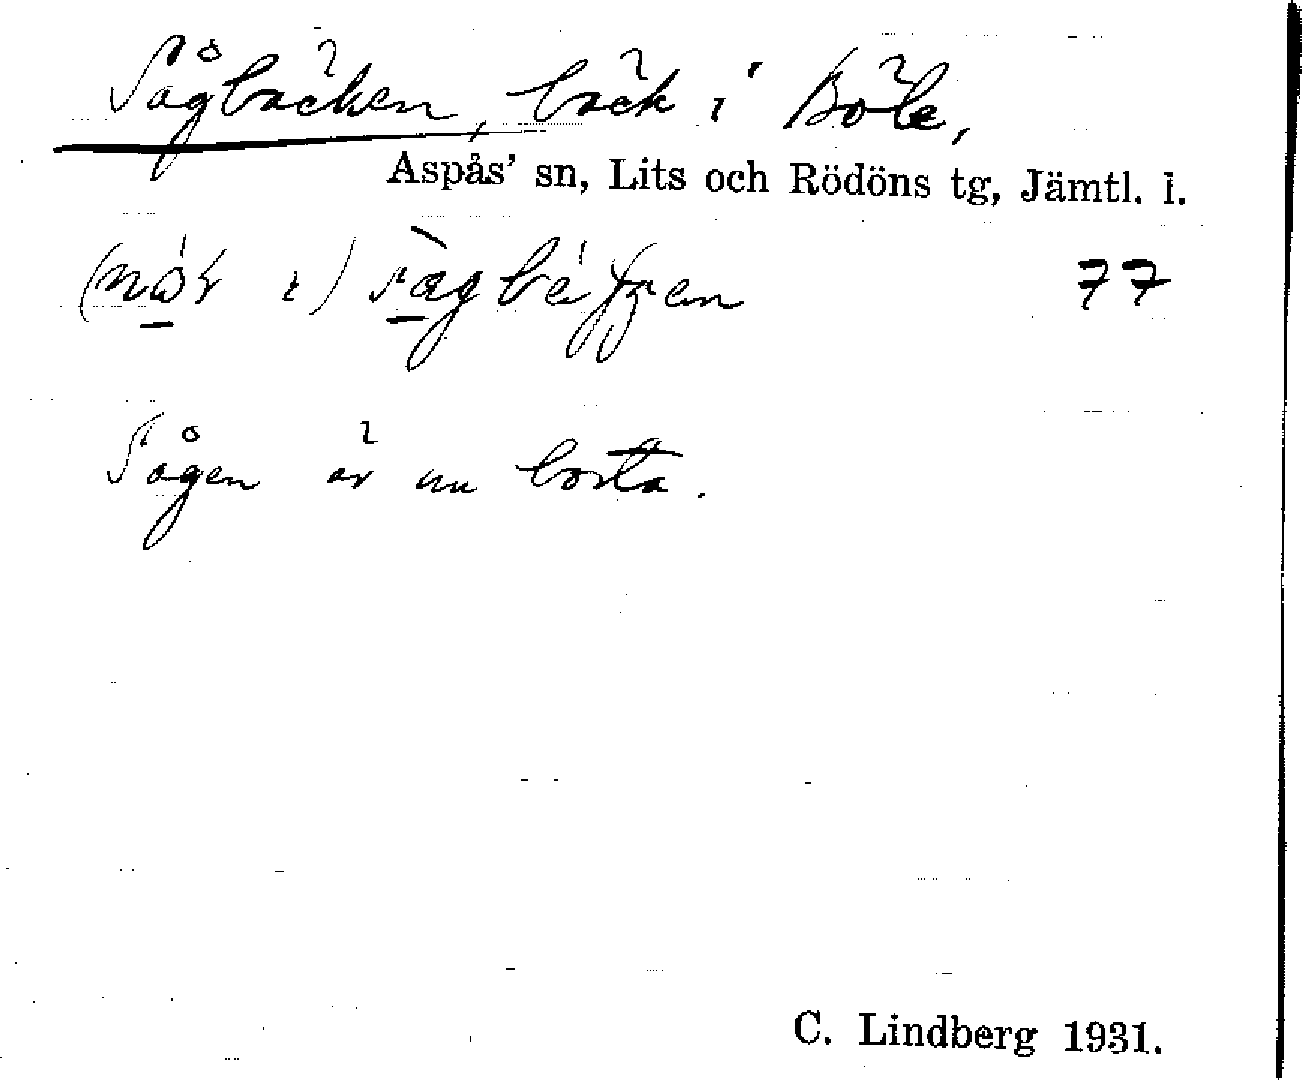 Sågbäcken, bäck i Böle,
Aspås' sn, Lits och Rödöns tg, Jämtl. l.
77
Sågen är nu borta.
C. Lindberg 1931.